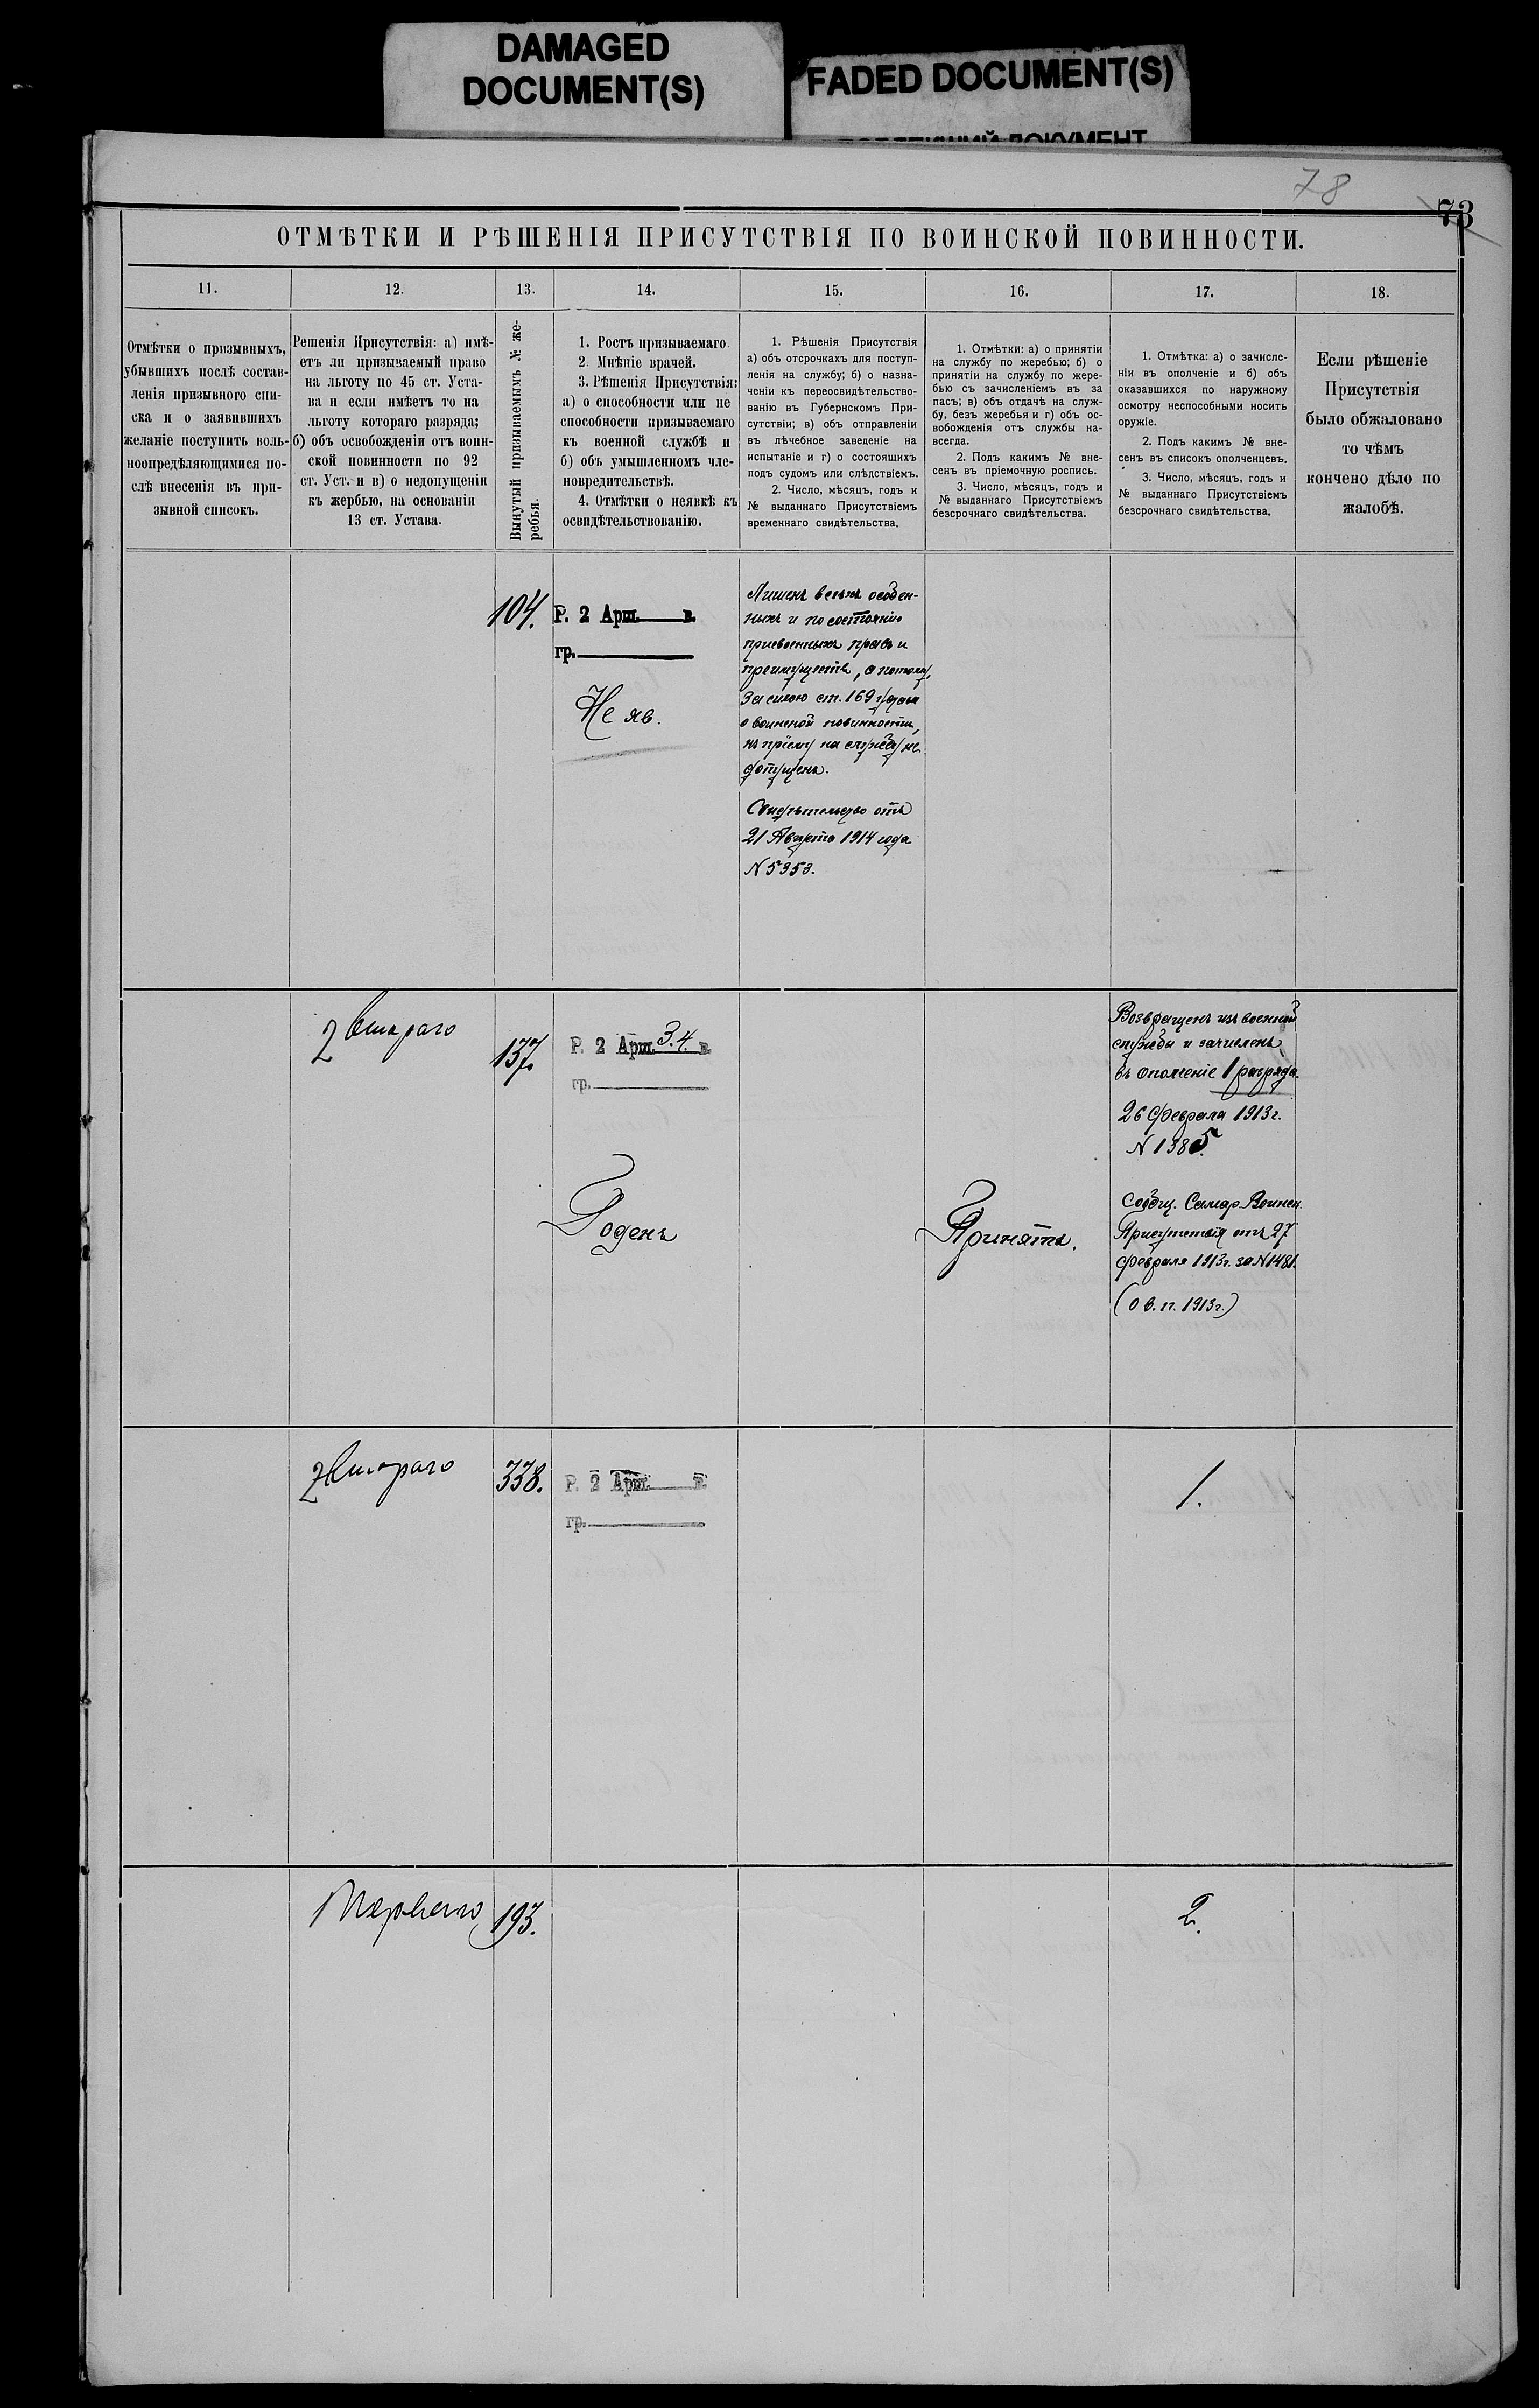 DAMAGED
DOCUMENT(S)
FADED DOCUMENT(S)
78
73
ОТМѢТКИ И РѢШЕНІЯ ПРИСУТСТВІЯ ПО ВОИНСКОЙ ПОВИННОСТИ.
11.
12.
13.
14.
15.
16.
17.
18.
Отмѣтки о призывныхъ,
убывшихъ послѣ состав-
ленія призывного спи-
ска и о заявившихъ
желаніе поступить воль-
ноопредѣляющимися по-
слѣ внесенія въ при-
зывной списокъ.
Решенія Присутствія: а) имѣ-
етъ ли призываемый право
на льготу по 45 ст. Уста-
ва и если имѣетъ то на
льготу котораго разряда;
б) объ освобожденіи отъ воин-
ской повинности по 92
ст. Уст. и в) о недопущеніи
къ жербью, на основаніи
13 ст. Устава.
Вынутый призываемымъ № же-
ребья.
1. Ростъ призываемаго.
2. Мнѣніе врачей.
3. Рѣшенія Присутствія:
а) о способности или не
способности призываемаго
къ военной службѣ и
б) объ умышленномъ чле-
новредительствѣ.
4. Отмѣтки о неявкѣ къ
освидѣтельствованію.
1. Рѣшенія Присутствія
а) объ отсрочкахъ для поступ-
ленія на службу; б) о назна-
ченіи къ переосвидѣтельство-
ванію въ Губернскомъ При-
сутствіи; в) объ отправленіи
въ лѣчебное заведеніе на
испытаніе и г) о состоящихъ
подъ судомъ или слѣдствіемъ.
2. Число, мѣсяцъ, годъ и
№ выданнаго Присутствіемъ
временнаго свидѣтельства.
1. Отмѣтки: а) о принятіи
на службу по жеребью; б) о
принятіи на службу по жере-
бью съ зачисленіемъ въ за
пасъ; в) объ отдачѣ на служ-
бу, безъ жеребья и г) объ ос-
вобожденія отъ службы на-
всегда.
2. Подъ какимъ № вне-
сенъ въ пріемочную роспись.
3. Число, мѣсяцъ, годъ и
№ выданнаго Присутствіемъ
безсрочнаго свидѣтельства.
1. Отмѣтка: а) о зачисле-
ніи въ ополченіе и б) объ
оказавшихся по наружному
осмотру неспособными носить
оружіе.
2. Подъ какимъ № вне-
сенъ въ списокъ ополченцевъ.
3. Число, мѣсяцъ, годъ и
№ выданнаго Присутствіемъ
безсрочнаго свидѣтельства.
Если рѣшеніе
Присутствія
было обжаловано
то чѣмъ
кончено дѣло по
жалобѣ.
104.
Р. 2 Арш. в.
гр.
Не яв.
Лишенъ всѣхъ особен-
ныхъ и по состоянію
присвоенныхъ правъ и
преимуществъ, а потому,
за силою ст. 169 Устава
о воинской повинности,
къ пріему на службу не
допущенъ.
Свидѣтельство отъ
21 Августа 1914 года
N 5353.
2 Втораго
137.
Р. 2 Арш. 3.4. в.
гр.
Годенъ
Принятъ.
Возвращенъ изъ военной
службы и зачисленъ
въ ополченіе 1 разряда.
26 Февраля 1913 г.
N 1385.
Сообщ. Самар. Воинск.
Присутствія отъ 27
Февраля 1913 г. за N 1481.
(О в. п. 1913 г.)
2 Втораго
338.
Р. 2 Арш. в.
гр.
1.
1 Перваго
193.
2.